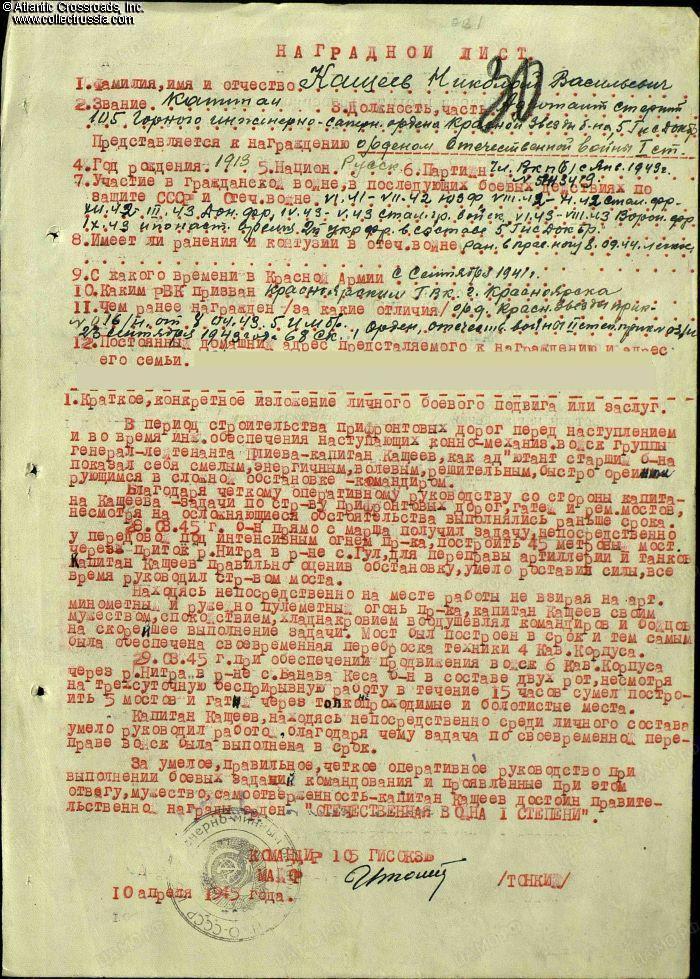 © Atlantic Crossroads, Inc.
www.collectrussia.com
30
НАГРАДНОЙ ЛИСТ
1.Фамилия,имя и отчество Кащеев Николай Васильевич
2.Звание Капитан 3.Должность,часть Адъютант старший
105 Горного инженерно-сапер. ордена Красной Звезды б-на
Представляется к награждению орденом Отечественной войны I ст.
4.Год рождения 1913 5.Национ. Русск. 6.Партийн.
7.Участие в Гражданской войне,в последующих боевых действиях по
защите СССР и Отеч.войне
8.Имеет ли ранения и контузии в отеч.войне
9.С какого времени в Красной Армии с Сентября 1941г.
10.Каким РВК призван Красноярским ГВК г. Красноярска
11.Чем ранее награжден /за какие отличия/ орд. Красн. Звезды
12.Постоянный домашний адрес предсталяемого к награждению и адрес
его семьи.
1.Краткое,конкретное изложение личного боевого подвига или заслуг.
В период строительства прифронтовых дорог перед наступлением
и во время инж.обеспечения наступающих конно-механиз.войск группы
генерал-лейтенанта Плиева-капитан Кащеев,как ад"ютант старший б-на
показал себя смелым,энергичным,волевым,решительным,быстро ореинти
рующимся в сложной обстановке -командиром.
Благодаря четкому оперативному руководству со стороны капита-
на Кащеева -задачи по стр-ву прифронтовых дорог,гатей и рем.мостов,
несмотря на осложняющиеся обстоятельства выполнялись раньше срока.
28.03.45 г. б-н прямо с марша получил задачу,непосредственно
у передовой под интенсивным огнем пр-ка,построить 45 метровый мост
через приток р.Нитра в р-не с.Гул,для переправы артиллерии и танков
Капитан Кащеев правильно оценив обстановку,умело роставил силы,все
время руководил стр-вом моста.
Находясь непосредственно на месте работы не взирая на арт.
минометный и ружейно пулеметный огонь пр-ка,капитан Кащеев своим
мужеством,спокойствием,хладнакровием воодушевлял командиров и бойцов
на скорейшее выполнение задачи. Мост был построен в срок и тем самым
была обеспечена своевременная переброска техники 4 Кав.Корпуса.
29.03.45 г.при обеспечении продвижения войск 6 Кав.Корпуса
через р.Нитра в р-не с.Банава Кеса б-н в составе двух рот,несмотря
на трехсуточную бесприрывную работу в течение 15 часов сумел постро-
ить 5 мостов и гатей через топкопроходимые и болотистые места.
Капитан Кащеев,находясь непосредственно среди личного состава
умело руководил работой,благодаря чему задача по своевременной пере-
праве войск была выполнена в срок.
За умелое,правильное,четкое оперативное руководство при
выполнении боевых заданий командования и проявленные при этом
отвагу,мужество,самоотверженность-капитан Кащеев достоин правите-
льственной награды орден "ОТЕЧЕСТВЕННАЯ ВОЙНА I СТЕПЕНИ".
КОМАНДИР 105 ГИСОКЗБ
МАЙОР /ТОНКИЙ/
10 апреля 1945 года.